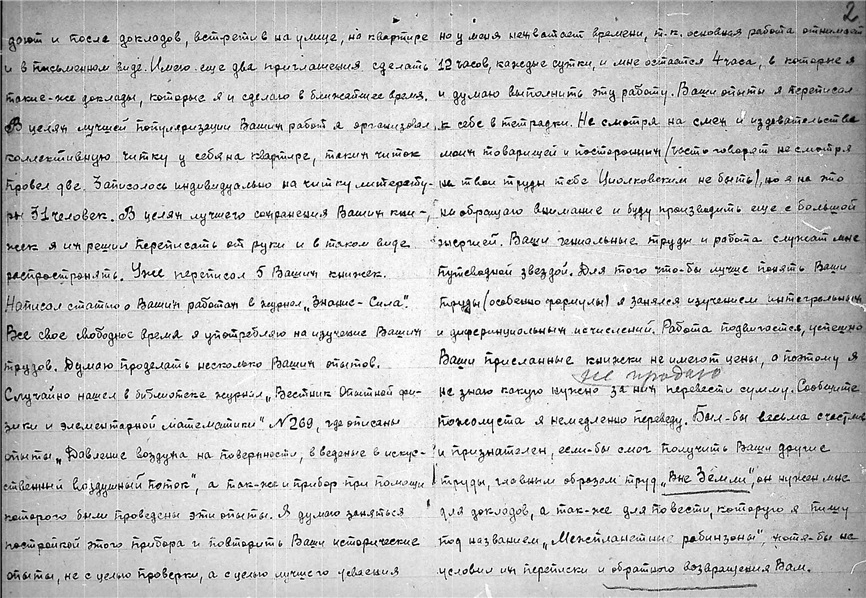 2
дают и после докладов, встретив на улице, на квартире
и в письменном виде. Имею еще два приглашения сделать
такие-же доклады, которые я и сделаю в ближайшее время.
В целях лучшей популяризации Ваших работ я организовал
коллективную читку у себя на квартире, таких читок
провел две. Записалось индивидуально на читку литерату-
ры 31 человек. В целях лучшего сохранения Ваших кни-
жек я их решил переписать от руки и в таком виде
распространять. Уже переписал 5 Ваших книжек.
Написал статью о Ваших работах в журнал „Знание-Сила".
Все свое свободное время я употребляю на изучение Ваших
трудов. Думаю проделать несколько Ваших опытов.
Случайно нашел в библиотеке журнал „Вестник Опытной фи-
зики и элементарной математики" №269, где описаны
опыты „Давление воздуха на поверхности, введеные в искус-
ственный воздушный поток", а так-же и прибор при помощи
которого были проведены эти опыты. Я думаю заняться
постройкой этого прибора и повторить Ваши исторические
опыты, не с целью проверки, а с целью лучшего усвоения
но у меня нехватает времени, т.к. основная работа отнимает
12 часов, каждые сутки, и мне остается 4 часа, в которые я
и думаю выполнить эту работу. Ваши опыты я переписал
к себе в тетрадки. Не смотря на смех и издевательства
моих товарищей и посторонных (часто говорят не смотря
на твои труды тебе Циолковским не быть), но я на это
не обращаю внимание и буду производить еще с большой
энергией. Ваши гениальные труды и работа служат мне
путеводной звездой. Для того что-бы лучше понять Ваши
труды (особенно формулы) я занялся изучением интегральных
и диференциальных исчислений. Работа подвигается, успешно
Ваши присланные книжки не имеют цены, а поэтому я
не продаю
не знаю какую нужно за них перевести сумму. Сообщите
пожолуста я немедленно переведу. Был-бы весьма счастлив
и признателен, если-бы смог получить Ваши другие
труды, главным образом труд „Вне Земли", он нужен мне
для докладов, а так-же для повести которую я пишу
под названием „Межпланетные робинзоны", хотя-бы на
условии их переписки и обратного возвращения Вам.